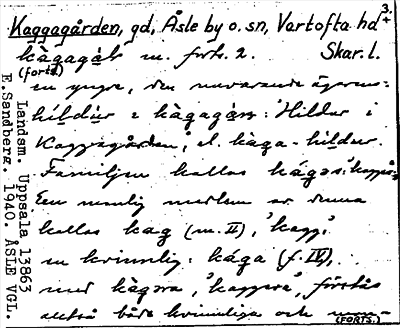 Kaggagården, gd, Åsle by o. sn, Vartofta hd
3.
+
kàgagáḷn m. forts. 2. Skar. l.
(forts.)
en yngre, den nuvarande ägarens:
hildur i kàgagáṣn: 'Hildur i
Kaggagården', el. kàga-hildur.
Familjen kallas kágəs: 'kagges'.
Een manlig medlem av denna
kallas kag (m. II), 'kagg';
en kvinnlig: kága (f. IV),
med kàgəra, 'kaggera', förstås
alltså både kvinnliga och man-
(FORTS.)
Landsm. Uppsala 13863
E.Sandberg. 1940. ÅSLE VGL.